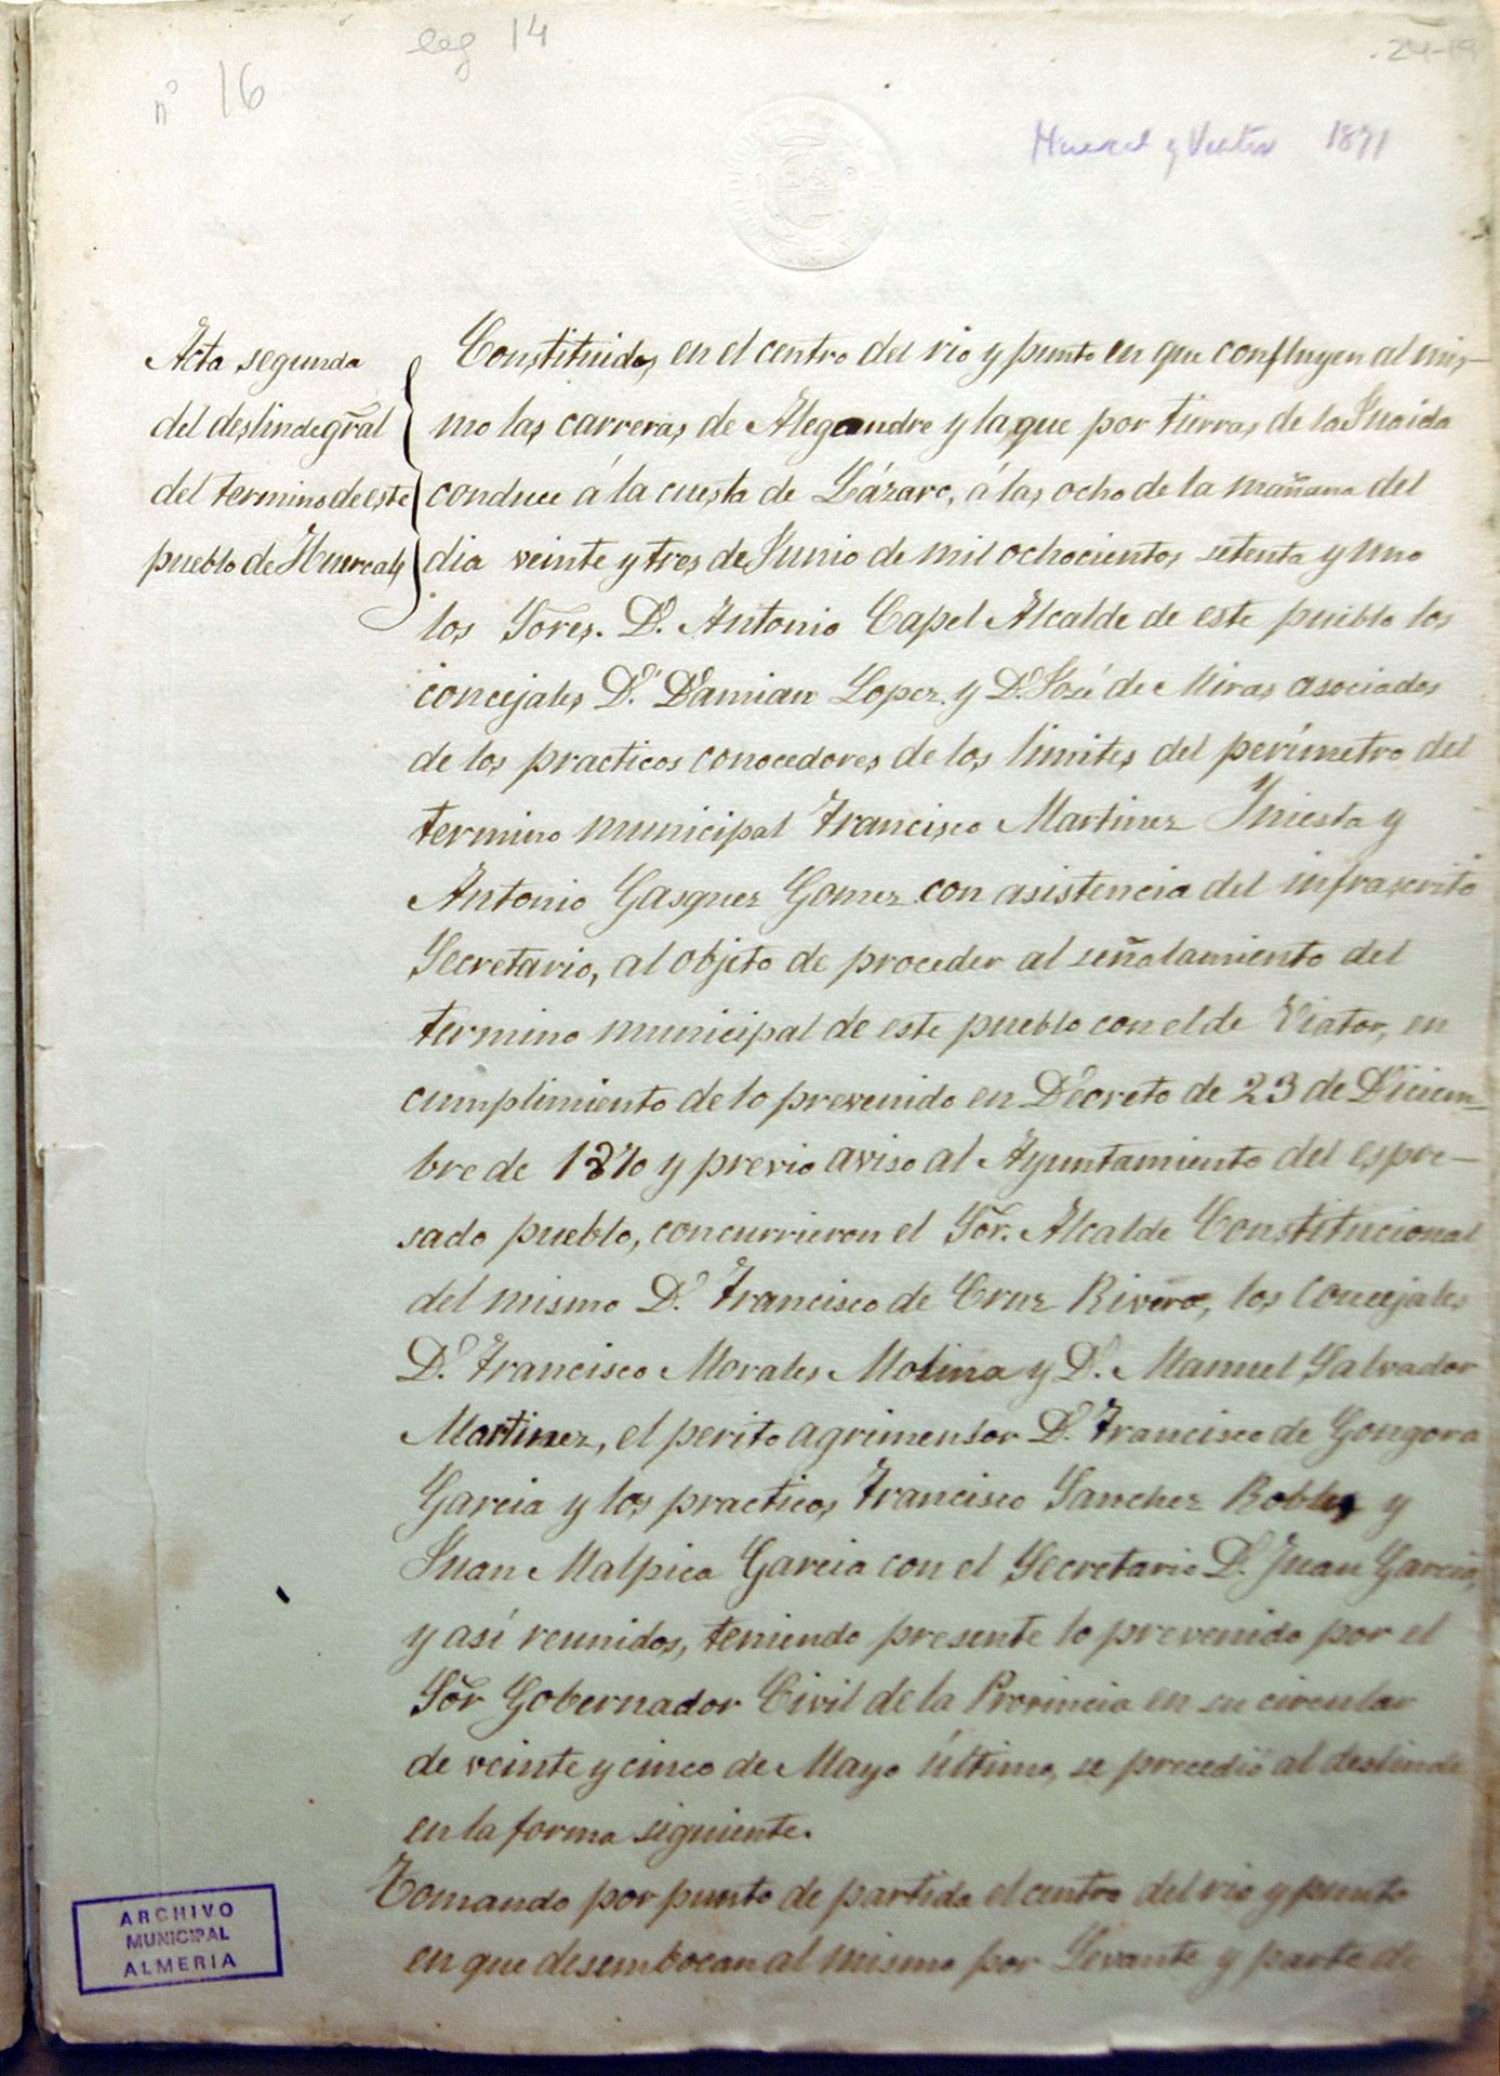 leg 14
nº 16
24-19
Huercal y Viator 1871
Acta segunda
del deslinde gral
del termino de este
pueblo de Huercal,
Constituidos en el centro del rio y punto en que confluyen al mis-
mo las carreras de Alegandre y la que por tierras de la Juaida
conduce á la cuesta de Lázaro, á las ocho de la mañana del
dia veinte y tres de Junio de mil ochocientos setenta y uno
los Sores. D. Antonio Capel Alcalde de este pueblo los
concejales D. Damian Lopez y D. José de Miras asociados
de los practicos conocedores de los limites del perímetro del
termino municipal Francisco Martinez Yniesta y
Antonio Gasquez Gomez con asistencia del infrascrito
Secretario, al objeto de proceder al señalamiento del
termino municipal de este pueblo con el de Viator, en
cumplimiento de lo prevenido en Decreto de 23 de Diciem-
bre de 1870 y previo aviso al Ayuntamiento del espre-
sado pueblo, concurrieron el Sor. Alcalde Constitucional
del mismo D. Francisco de Cruz Rivera, los concejales
D. Francisco Morales Molina y D. Manuel Salvador
Martinez, el perito agrimensor D. Francisco de Gongora
Garcia y los practicos Francisco Sanchez Robles y
Juan Malpica Garcia con el Secretario D. Juan Garcia,
y así reunidos, teniendo presente lo prevenido por el
Sor Gobernador Civil de la Provincia en su circular
de veinte y cinco de Mayo último, se procedió al deslinde
en la forma siguiente.
Tomando por punto de partida el centro del rio y punto
en que desembocan al mismo por Levante y parte de
ARCHIVO
MUNICIPAL
ALMERIA